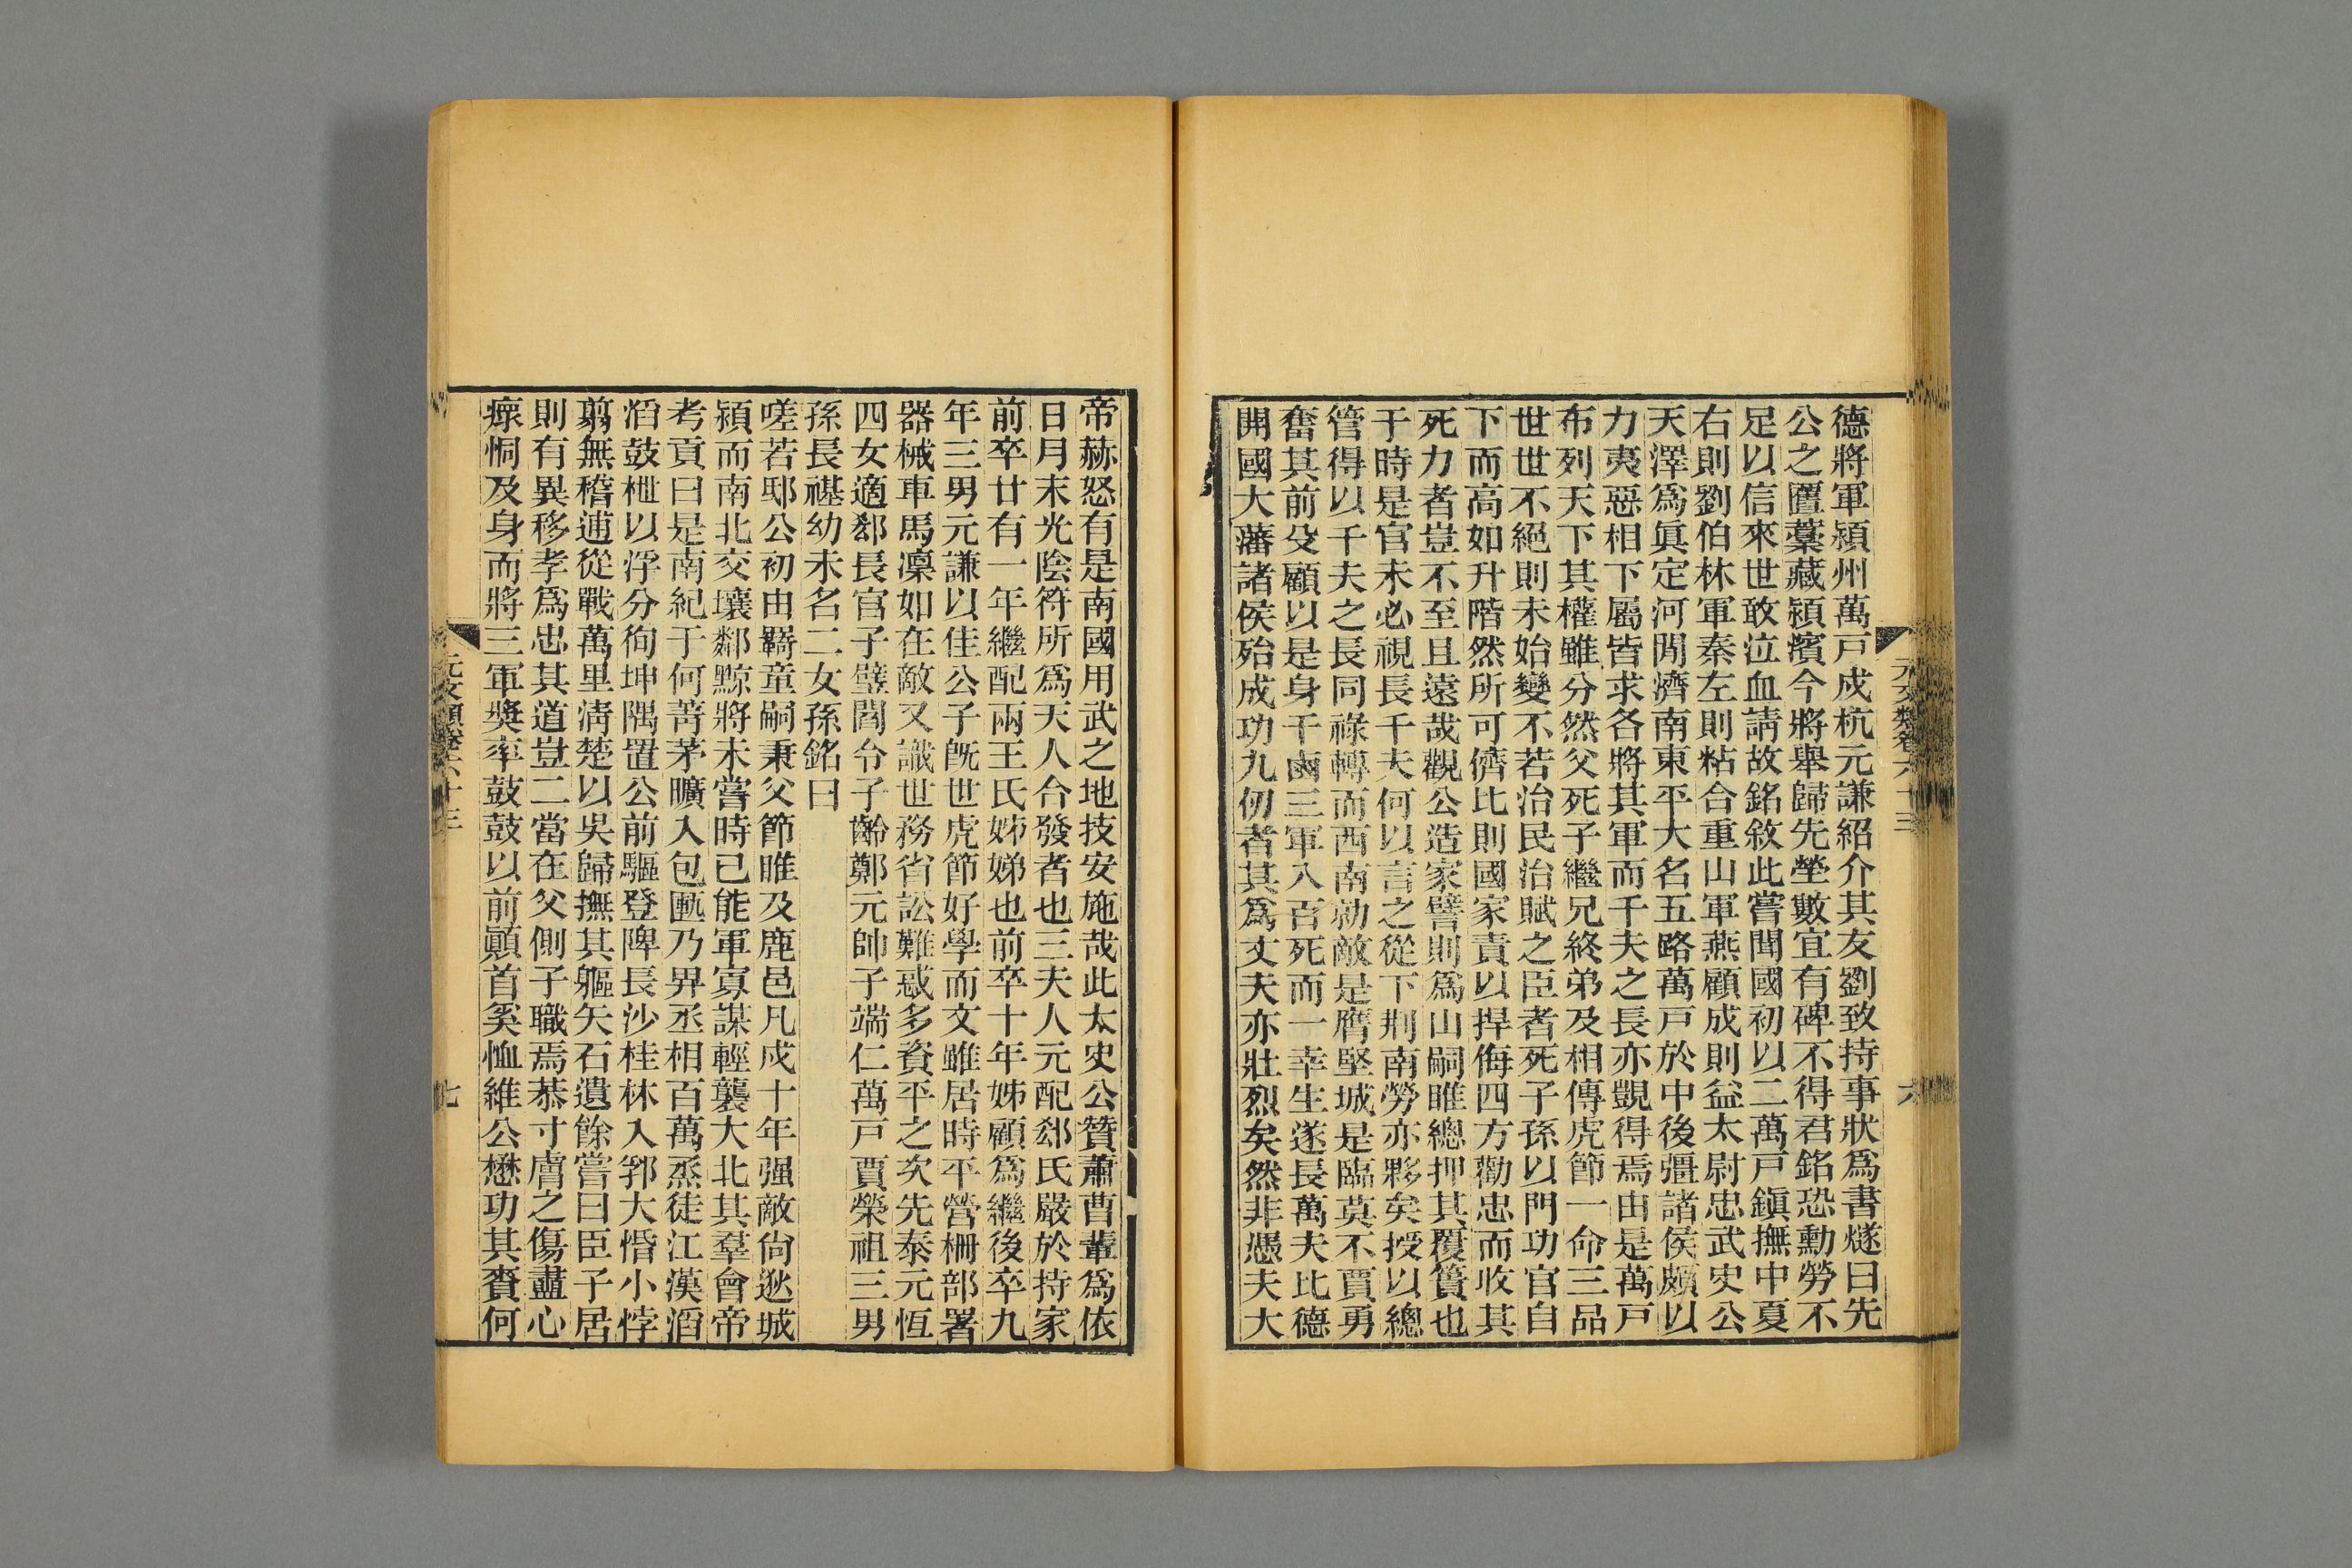 元文類卷六十三
六
德將軍潁州萬戸戍杭元謙紹介其友劉致持事狀爲書燧曰先
公之匶藁藏潁濱今將舉歸先塋數宜有碑不得君銘恐勳勞不
足以信來世敢泣血請故銘敘此嘗聞國初以二萬戸鎭撫中夏
右則劉伯林軍秦左則粘合重山軍燕顧成則益太尉忠武史公
天澤爲眞定河閒濟南東平大名五路萬戸於中後彊諸侯頗以
力夷惡相下屬皆求各將其軍而千夫之長亦覬得焉由是萬戸
布列天下其權雖分然父死子繼兄終弟及相傳虎節一命三品
世世不絕則未始變不若治民治賦之臣者死子孫以門功官自
下而高如升階然所可儕比則國家責以捍侮四方勸忠而收其
死力者豈不至且遠哉觀公造家譬則爲山嗣睢總押其覆簣也
于時是官未必視長千夫何以言之從下荆南勞亦夥矣授以總
管得以千夫之長同祿轉而西南勍敵是膺堅城是臨莫不賈勇
奮其前殳顧以是身干鹵三軍入百死而一幸生遂長萬夫比德
開國大藩諸侯殆成功九仞者其爲丈夫亦壯烈矣然非憑夫大
帝赫怒有是南國用武之地技安施哉此太史公贊蕭曹輩爲依
日月末光陰符所爲天人合發者也三夫人元配郄氏嚴於持家
前卒廿有一年繼配兩王氏姊娣也前卒十年姊顧爲繼後卒九
年三男元謙以佳公子旣世虎節好學而文雖居時平營柵部署
器械車馬凛如在敵又識世務省訟難惑多資平之次先泰元恆
四女適郄長官子璧閻令子齡鄭元帥子端仁萬戸賈榮祖三男
孫長禥幼未名二女孫銘曰
嗟若邸公初由羇童嗣秉父節睢及鹿邑凡戍十年强敵尙逖城
潁而南北交壤鄰黥將未嘗時已能軍寡謀輕襲大北其羣會帝
考貢曰是南紀于何菁茅曠入包匭乃畀丞相百萬烝徒江漢滔
滔鼓枻以浮分徇坤隅置公前驅登陴長沙桂林入郛大惛小悖
翦無稽逋從戰萬里淸楚以吳歸撫其軀矢石遺餘嘗曰臣子居
則有異移孝爲忠其道豈二當在父側子職焉恭寸膚之傷衋心
瘝恫及身而將三軍奬率鼓鼓以前顚首奚恤維公懋功其賚何
元文類卷六十三
七